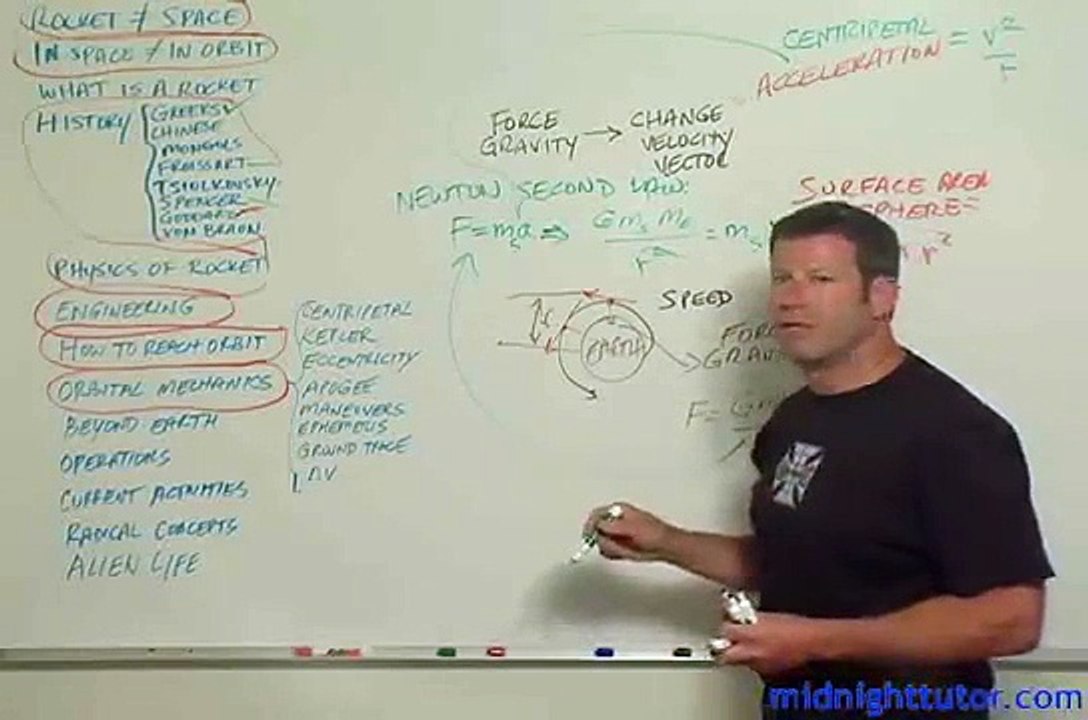 ROCKET ≠ SPACE
IN SPACE ≠ IN ORBIT
WHAT IS A ROCKET
HISTORY
GREEKS
CHINESE
MONGOLS
FROISSART
TSIOLKOVSKY
SPENCER
GODDARD
VON BRAUN
PHYSICS OF ROCKET
ENGINEERING
HOW TO REACH ORBIT
ORBITAL MECHANICS
BEYOND EARTH
OPERATIONS
CURRENT ACTIVITIES
RADICAL CONCEPTS
ALIEN LIFE
CENTRIPETAL
KEPLER
ECCENTRICITY
APOGEE
MANEUVERS
EPHEMEUS
GROUND TRACE
ΔV
CENTRIPETAL
ACCELERATION = v²/r
FORCE GRAVITY → CHANGE VELOCITY VECTOR
NEWTON SECOND LAW:
F = mₛa ⇒ G mₛ mE / r² = mₛ
SURFACE AREA
SPHERE =
r²
SPEED
EARTH
r
FORCE
F = G
midnighttutor.com